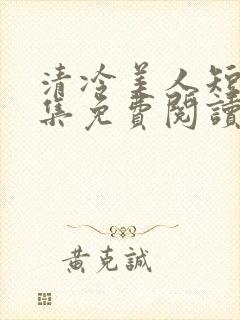 清冷美人短
集免費閱讀
黃克誠